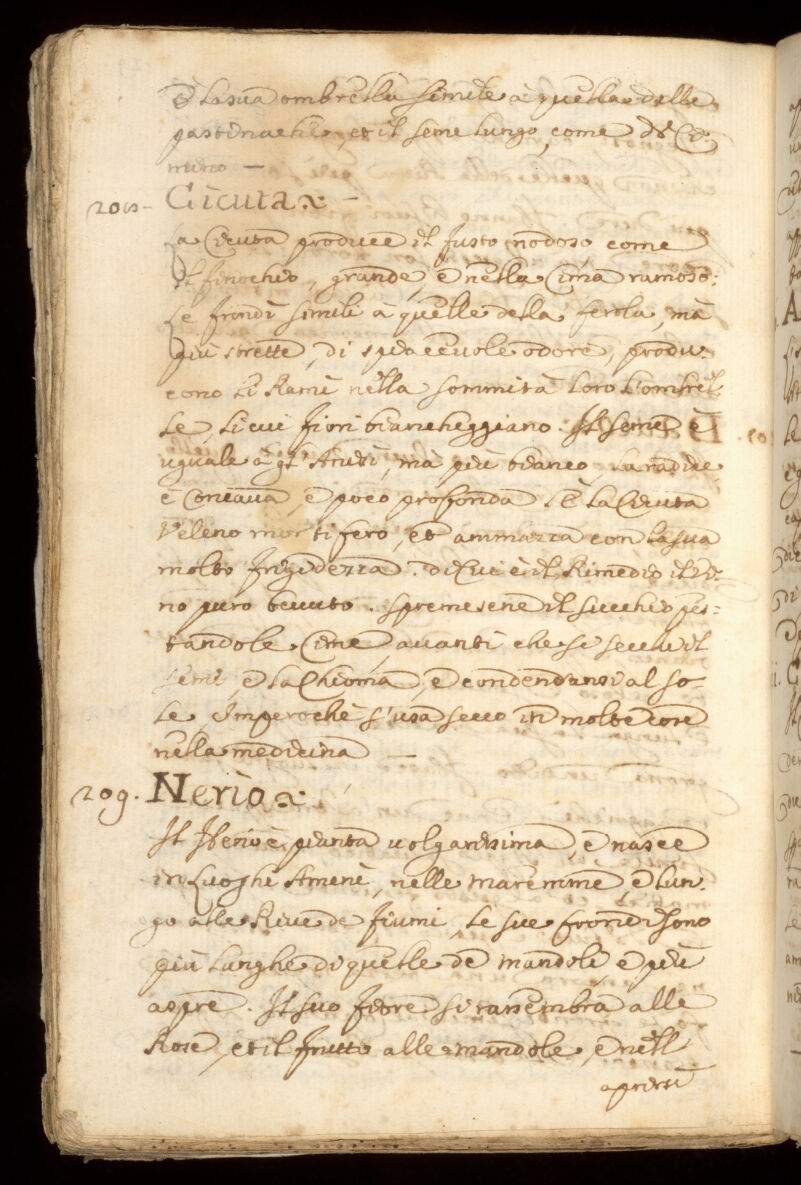 È la sua ombrella simile à quella delle
pastinache, et il seme lungo, come di Ci-
mino —
208 – Cicuta –
La Cicuta produce il fusto nodoso come
il finochio, grande, è nella Cima ramoso:
le frondi simili à quelle della ferola, mà
più strette, di spiaceuole odore, produ:
cono li Rami nella sommità loro l'ombrel-
le, li cui fiori biancheggiano. Il seme è
uguale à gl'Anisi, mà più bianco, la radice
è Concaua, è poco profonda. È la Cicuta
Veleno mortifero, et ammazza con la sua
molto frigidezza. di Cui è il Rimedio il Vi:
no puro beuuto. Spremesene il succhio pes:
tandole Cime, auanti che si secchi il
seme, è la Chioma, è condendunsi al so-
le, Imperochè s'usa secco in molte cose
nella medicina —
209. Nerio
Il Nerio è pianta uolgarissima, è nasce
in luoghi Ameni, nelle maremme, è lun:
go alle Riue de fiumi, le sue frondi sono
più lunghe di quelle de mandoli, è più
aspre. Il suo fiore si rassembra alle
Rose, et il frutto alle mandole, è nell
aprirsi